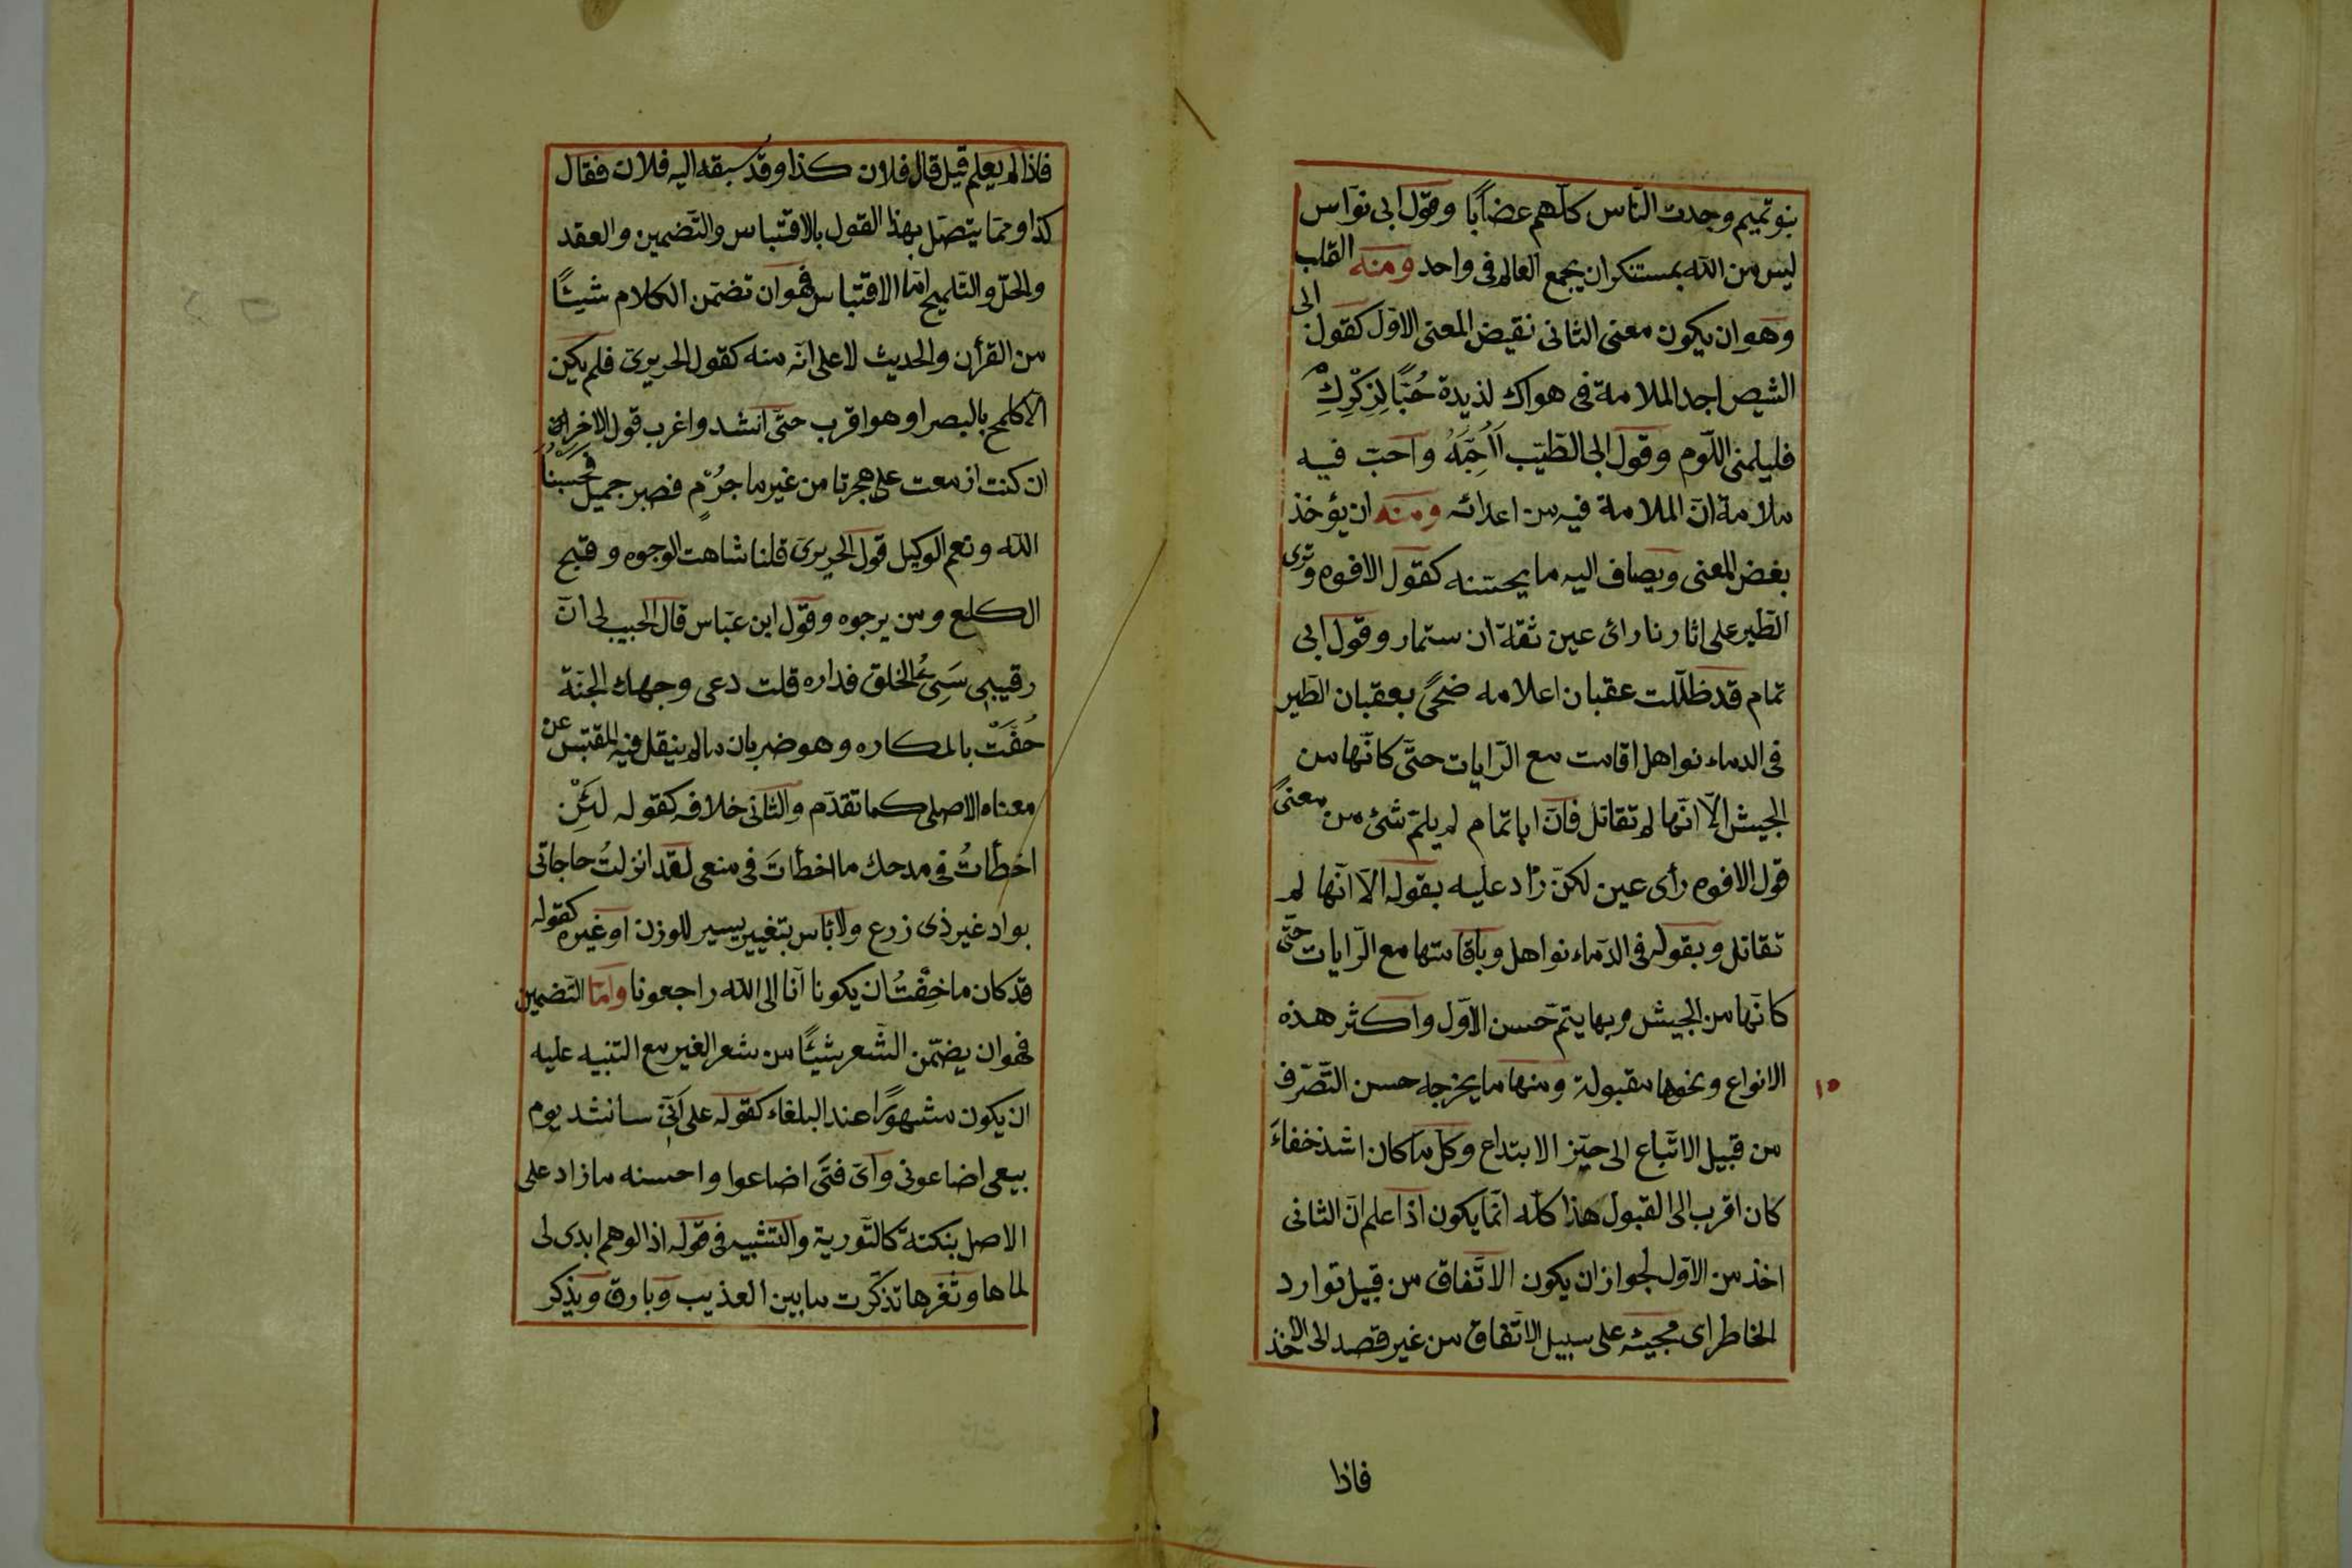 بنو تميم وجدت الناس كلّهم غضابًا وقول ابى نوّاس
ليس من الله بمستنكر ان يجمع العالم فى واحد ومنه القلب
وهو ان يكون معنى الثانى نقيض المعنى الاوّل كقول ابى
الشيص اجد الملامة فى هواك لذيدة حُبًّا لِذِكْرِكِ
فليلمنى اللّوم وقول ابى الطّيّب أَأُحِبُّهُ واحبّ فيه
ملامة انّ الملامة فيه من اعدائه ومنه ان يؤخذ
بغض المعنى ويضاف اليه ما يحسّنه كقول الافوه وترى
الطّير على اثارنا رائ عين ثقة ان ستمار وقول ابى
تمام قد ظلّلت عقبان اعلامه ضحًى بعقبان الطّير
فى الدماء نواهل اقامت مع الرّايات حتّى كانّها من
الجيش الّا انّها لم تقاتل فانّ ابا تمام لم يلمّ شئ من معنى
قول الافوه رأى عين لكنّ زاد عليه بقوله الّا انّها لم
تقاتل وبقوله فى الدّماء نواهل وباقامتها مع الرّايات حتّى
كانّها من الجيش وبها يتمّ حسن الاوّل واكثر هذه
الانواع ونحوها مقبولة ومنها ما يخرجه حسن التّصرّف
١٥
من قبيل الاتّباع الى حيّز الابتداع وكل ما كان اشد خفاءً
كان اقرب الى القبول هذا كلّه انّما يكون اذا علم انّ الثانى
اخذ من الاوّل لجواز ان يكون الاتّفاق من قبيل توارد
الخاطر اى مجيئه على سبيل الاتّفاق من غير قصد الى الاخذ
فاذا
فاذا لم يعلم قيل قال فلان كذا وقد سبقه اليه فلان فقال
كذا وممّا يتصّل بهذا القول بالاقتباس والتّضمين والعقد
والحلّ والتّلميح امّا الاقتباس فهو ان تضمّن الكلام شيئًا
من القرأن والحديث لا على انّه منه كقول الحريرىّ فلم يكن
الّا كلمح بالبصر او هو اقرب حتّى انشد واغرب قول الاخر ان
ان كنت ازمعت على هجرتا من غير ما جُرْمٍ فصبر جميل فحَسْبُنَا
الله ونعم الوكيل قول الحريرىّ قلنا شاهت الوجوه وقبح
الكلع ومن يرجوه وقول ابن عبّاس قال الحبيب لى انّ
رقيبى سَيِئُ الخلق فداره قلت دعى وجهك الجنّة
حُفَّتْ بالمكاره وهو ضربان ما لم ينقل فيه المقتبس عن
معناه الاصلى كما تقدّم والثانى خلافه كقوله لَئِنْ
اخطأتُ فى مدحك ما اخطأتَ فى منعى لقد انزلتُ حاجاتى
بواد غير ذى زرع ولا باس بتغيير يسير للوزن او غيره كقوله
قد كان ما خِفْتُ ان يكونا انّا الى الله راجعونا وامّا التّضمين
فهو ان يضمّن الشّعر شيئًا من شعر الغير مع التنبيه عليه
ان يكون مشهورًا عند البلغاء كقوله على انّى سانشد يوم
بيعى اضاعونى واىّ فتًى اضاعوا واحسنه ما زاد على
الاصل بنكتة كالتّورية والتّشبيه فى قوله اذا الوهم ابدى لى
لماها وثغرها تذكّرت ما بين العذيب وبارق ويذكر